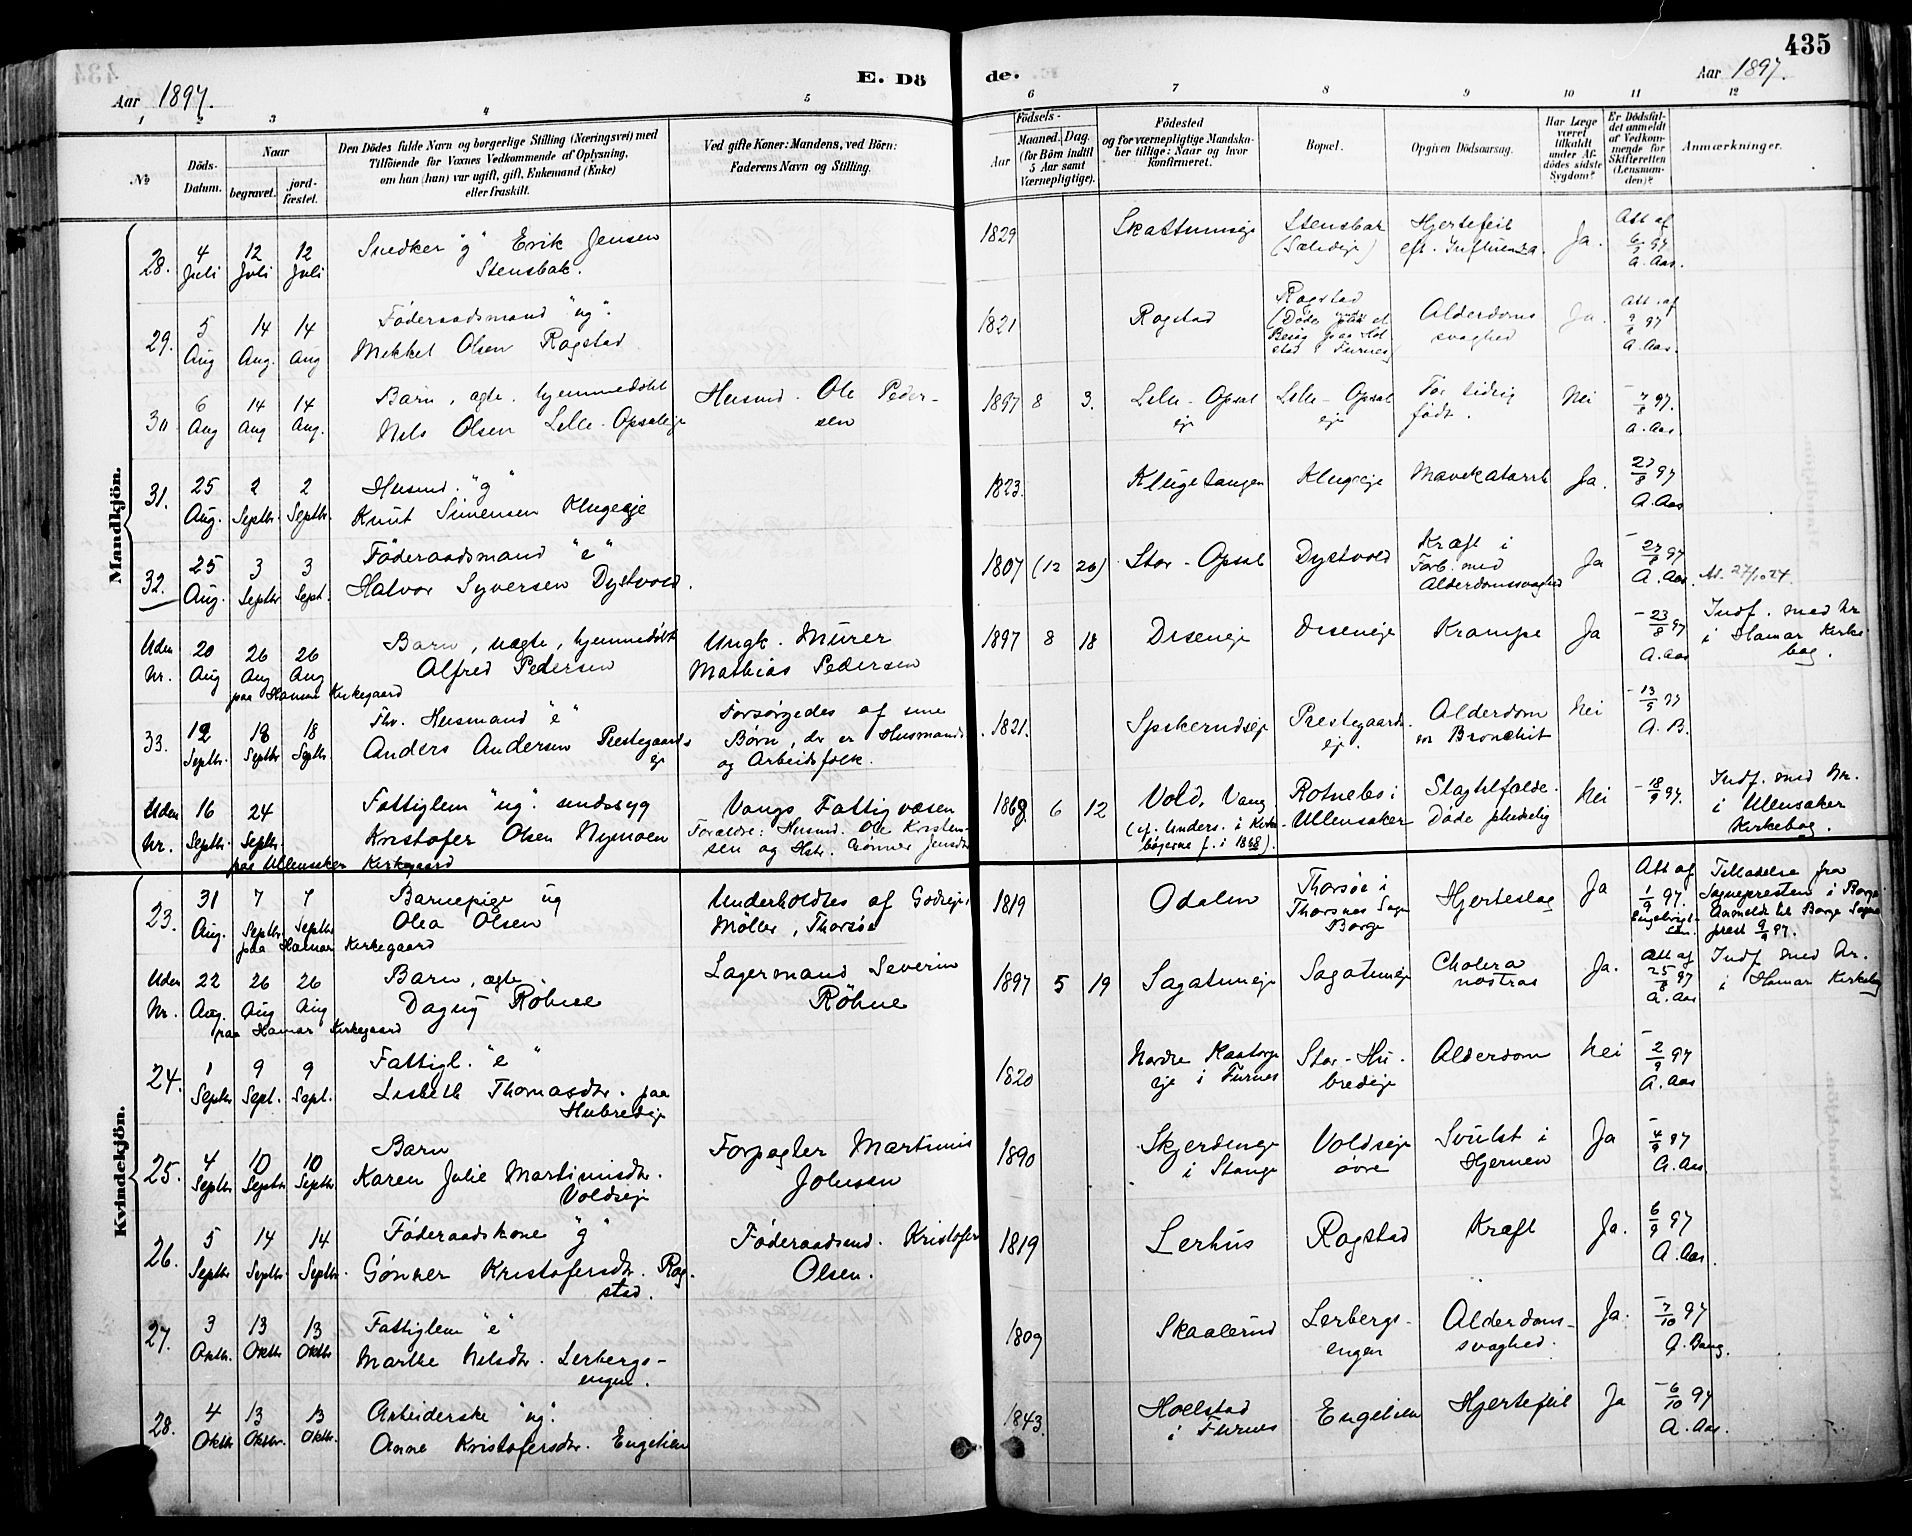 435
E. Dö
de.
Aar 1897.
Aar 1897.
1 2 3 4 5 6 7 8 9 10 11 12
No
Döds-
Datum.
Naar
begravet.
jord-
fæstet.
Den Dödes fulde Navn og borgerlige Stilling (Næringsvei) med
Tilföiende for Voxnes Vedkommende af Oplysning,
om han (hun) var ugift, gift, Enkemand (Enke)
eller fraskilt.
Ved gifte Koner: Mandens, ved Börn:
Faderens Navn og Stilling.
Födsels-
Aar
Maaned. Dag.
(for Börn indtil
5 Aar samt
Værnepligtige).
Födested
og for værnepligtige Mandska-
ber tillige: Naar og hvor
konfirmeret.
Bopæl.
Opgiven Dödsaarsag.
Har Læge
været
tilkaldt
under Af-
dödes sidste
Sygdom?
Er Dödsfal-
det anmeldt
af Vedkom-
mende for
Skifteretten
(Lensman-
den)?
Anmærkninger.
Mandkjön.
28. 4 Juli 12 Juli 12 Juli
Snedker "g" Erik Jensen
Stensbak.
1829 Skattumseje Stensbak
Hjertefeil
eft. Influenza. Ja. Att af
6/7 97
A. Aas.
29. 5 Aug 14 Aug. 14 Aug
Föderaadsmand "ug".
Mikkel Olsen Rogstad
1821 Rogstad Rogstad
Alderdoms
svaghed Ja. Att. af
9/8 97
A. Aas.
30 6 Aug 14 Aug 14 Aug.
Barn, ægte. hjemmedøbt
Nils Olsen Lille-Opsaleje
Husmd. Ole Peder-
sen
1897 8 3. Lille-Opsal
eje
Lille-Opsal
eje
For tidlig
født. Nei - 7/8 97.
A. Aas.
31. 25 Aug. 2 Septbr. 2 Septbr.
Husmd. "g"
Knut Simensen Klugeeje
1823. Klugetangen Klugeeje Mavekatarrh Ja. 27/8 97
A. Aas
32. 25 Aug. 3 Septbr 3 Sept.
Föderaadsmand "e"
Halvor Syversen Dystvold.
1807 (12 20) Stor-Opsal Dystvold Kræft i
Forb. med
Alderdomssvaghed Ja - 27/8 97
A. Aas.
Uden Nr. 20 Aug 26 Aug 26 Aug
paa Hamar Kirkegaard
Barn, uægte, hjemmedøbt
Alfred Pedersen
Ungk. Murer
Mathias Pedersen
1897 8 18 Diseneje Diseneje Krampe Ja - 23/8 97
A. Aas
Indf. med Nr
i Hamar Kirke
bog.
33. 12 Septbr. 18 Septbr 18 Septbr.
Fhv. Husmand "e"
Anders Andersen Prestegaards
eje
Forsørgedes af sine
Børn, der er Husmands
og Arbeidsfolk.
1821. Prestegaards.
ej.
Alderdom
og Bronchit Nei - 13/9 97
A. B.
Uden Nr. 16 Septbr. 24 Septbr.
paa Ullensaker Kirkegaard
Fattiglem "ug". sindssyg
Kristofer Olsen Nymoen
Vangs Fattigvæsen
Forældre: Husmd. Ole Kristen-
sen og Hstr. Gönner Jensdtr
1868 6 12 Vold, Vang
(cf. Unders. i Kirke-
bögerne f. i 1868).
Rotnebs i
Ullensaker
Slagtilfælde.
Døde pludselig Nei - 18/9 97.
Indf. med Nr.
i Ullensaker
Kirkebog.
Kvindekjön.
23. 31 Aug. 7 Septbr. 7 Septbr
paa Hamar Kirkegaard
Barnepige ug
Olea Olsen
Underholdtes af Godseier
Möller, Thorsöe
1819 Odalen Thorsöe i
Thorsnes Sogn
Borge
Hjerteslag Ja Att af
1/9 97.
Engebrigt-
sen.
Tilladelse fra
Sognepresten i Borge
Anmeldt til Borge Sogne
prest 9/9 97.
Uden Nr. 22 Aug. 26 Aug 26 Aug
paa Hamar Kirkegaard
Barn, ægte
Dagny Röhne
Lagermand Severin
Röhne
1897 5 19 Sagatuneje Sagatuneje Cholera
nostras Ja. Att af
25/8 97
A. Aas
Indf. med Nr.
i Hamar Kirkebog
24. 1 Septbr 9 Sept. 9 Sept.
Fattigl. "e"
Lisbeth Thomasdtr. paa
Hubredeje
1820 Nordre Kaatorp
eje i Furnes
Stor-Hu-
bredeje
Alderdom Nei - 2/9 97
A. Aas
25. 4 Septbr 10 Septbr 10 Septbr
Barn
Karen Julie Martinusdtr.
Voldseje
Forpagter Martinus
Johnsen
1890 Skjerdingeje
i Stange
Voldseje
övre
Svulst i
Hjernen Ja - 4/9 97
A. Aas
26. 5 Septbr 14 Septbr. 14 Septbr.
Föderaadskone "g"
Gönner Kristofersdtr. Rog-
stad.
Föderaadsmd. Kristofer
Olsen.
1819 Lerhus Rogstad Kræft Ja. 6/9 97
A. Aas.
27. 3 Oktbr. 13 Oktbr 13 Oktbr
Fattiglem "e"
Marthe Nilsdtr. Lerbergs-
engen.
1809 Skaalerud Lerbergs-
engen
Alderdoms-
svaghed. Ja. - 7/10 97
A. Bang.
28. 4 Oktbr 13 Oktbr. 13 Oktbr.
Arbeiderske "ug".
Anne Kristofersdtr. Engelien
1843. Hoelstad
i Furnes
Engelien Hjertefeil Ja - 6/10 97
A. Aas.